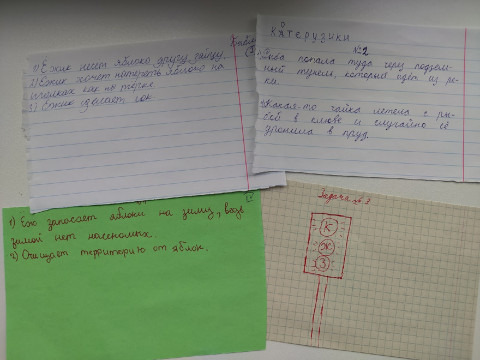 1) Ёжик несёт яблоко другу зайцу.
2) Ёжик хочет наколоть яблоко на
иголках как на
3) Ёжик сделает сок
Катерузики
№2
1. Рыба попала туда через подзем-
ный туннель, который идёт из ре-
ки.
2. Какая-то чайка летела с ры-
бой в клюве и случайно её
уронила в пруд.
1) Ёжо запасает яблоки на зиму, ведь
зимой нет насекомых.
2) Очищает территорию от яблок.
Задача № 8
К
Ж
З